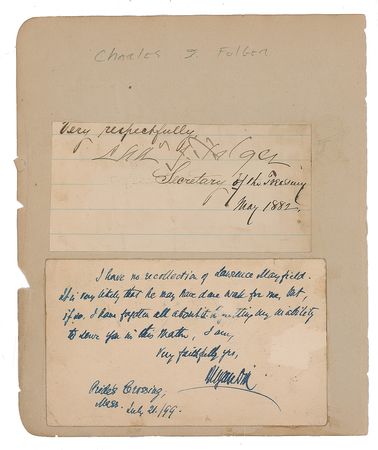 CHARLES J. FOLGER
Very respectfully
Chas J. Folger
Secretary of the Treasury
May 1882.
I have no recollection of Lawrence Mayfield.
It is very likely that he may have done work for me, but,
if so, I have forgotten all about it. Regretting my inability
to serve you in this matter, I am,
Very faithfully yrs,
Pride's Crossing,
Mass. July 21/99.